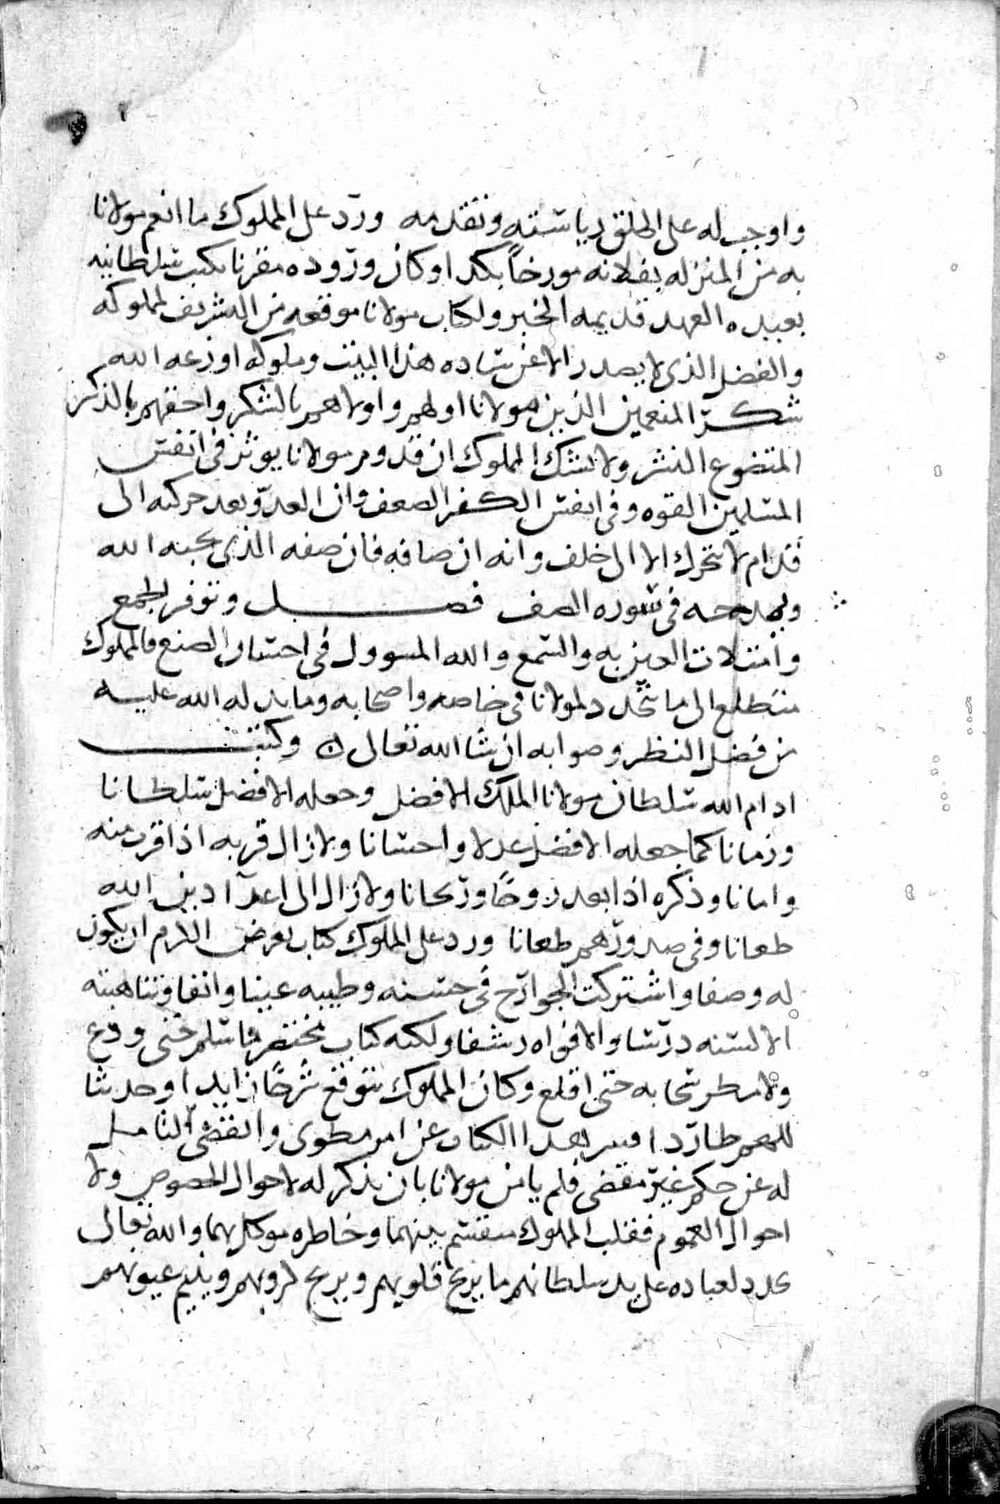 واوجب له على الخلق رياسته وتقدمه ورد على المملوك ما انعم مولانا
به من المنزله بفلانه مورخاً بكذا وكان وروده مقرنا بكتب سلطانيه
بعيده العهد قديمه الخبر ولكتاب مولانا موقعه من التشريف لمملوكه
والفضل الذى لا يصدر الا عن ساده هذا البيت وملوكه اوزعه الله
شكر المنعمين الذين مولانا اولهم واولاهم بالشكر واحقهم بالذكر
المتضوع النشر ولا يشك المملوك ان قدوم مولانا يوثر فى انفس
المسلمين القوه وفى انفس الكفر الضعف وان العدو بعد حركته الى
قدام لا يتحرك الا الى خلف وانه ان صافه فان صفه الذى يحبه الله
ويمدحه فى سوره الصف فصل وتوفر الجمع
وامتلات العين به والسمع والله المسوول فى احسان الصنع والمملوك
متطلع الى ما تجدد لمولانا فى خاصه واصحابه وما يدله الله عليه
من فضل النظر وصوابه ان شا الله تعالى وكتب
ادام الله سلطان مولانا الملك الافضل وجعله الافضل سلطانا
وزمانا كما جعله الافضل عدلا واحسانا ولا زال قربه اذا قرب منه
وامانا وذكره اذا بعد روحا وريحانا ولا زال الى اعدآ دين الله
طعانا وفى صدورهم طعانا ورد على المملوك كتاب بعرض الكرم ان يكون
له وصفا واشتركت الجوارح فى حسنه وطيبه عينا وانفا وتناهبته
الالسنه درسا والافواه رشفا ولكنه كتاب مختصر ما سلم حتى ودع
ولا مطر سحابه حتى اقلع وكان المملوك يتوقع شرحا زايدا وحديثا
للهم طاردا هذا الكتاب عن امر مطوى وانقضى التامل
له عن حكم غير مقضى فلم يا من مولانا بان يذكر له لا احوال الخصوص ولا
احوال العموم فقلب المملوك منقسم بينهما وخاطره موكل بهما والله تعالى
يجدد لعباده على يد سلطانهم ما يريح قلوبهم ويريح كروبهم وينيم عيونهم